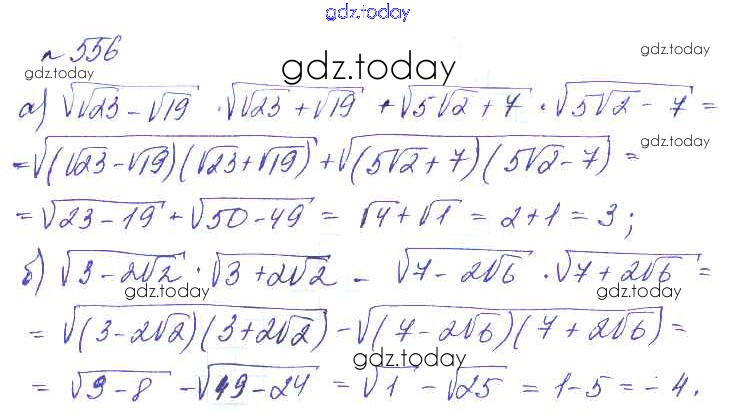 gdz.today
№ 556
gdz.today
gdz.today
gdz.today
а) √(√23 − √19) · √(√23 + √19) + √(5√2 + 7) · √(5√2 − 7) =
= √((√23 − √19)(√23 + √19)) + √((5√2 + 7)(5√2 − 7)) =
gdz.today
= √(23 − 19) + √(50 − 49) = √4 + √1 = 2 + 1 = 3;
б) √(3 − 2√2) · √(3 + 2√2) − √(7 − 2√6) · √(7 + 2√6) =
gdz.today
gdz.today
= √((3 − 2√2)(3 + 2√2)) − √((7 − 2√6)(7 + 2√6)) =
gdz.today
= √(9 − 8) − √(49 − 24) = √1 − √25 = 1 − 5 = −4.